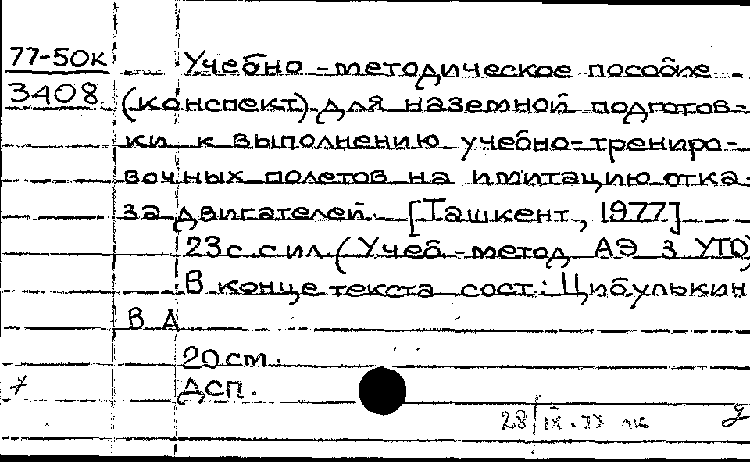 77-50к
3408
Учебно-методическое пособие
(конспект) для наземной подготов-
ки к выполнению учебно-трениро-
вочных полетов на имитацию отка-
за двигателей. [Ташкент, 1977]
23 с. с ил. (Учеб.-метод АЭ 3 УТО)
В конце текста сост.: Цибулькин
В А
20 см.
ДСП.
28/IX.77